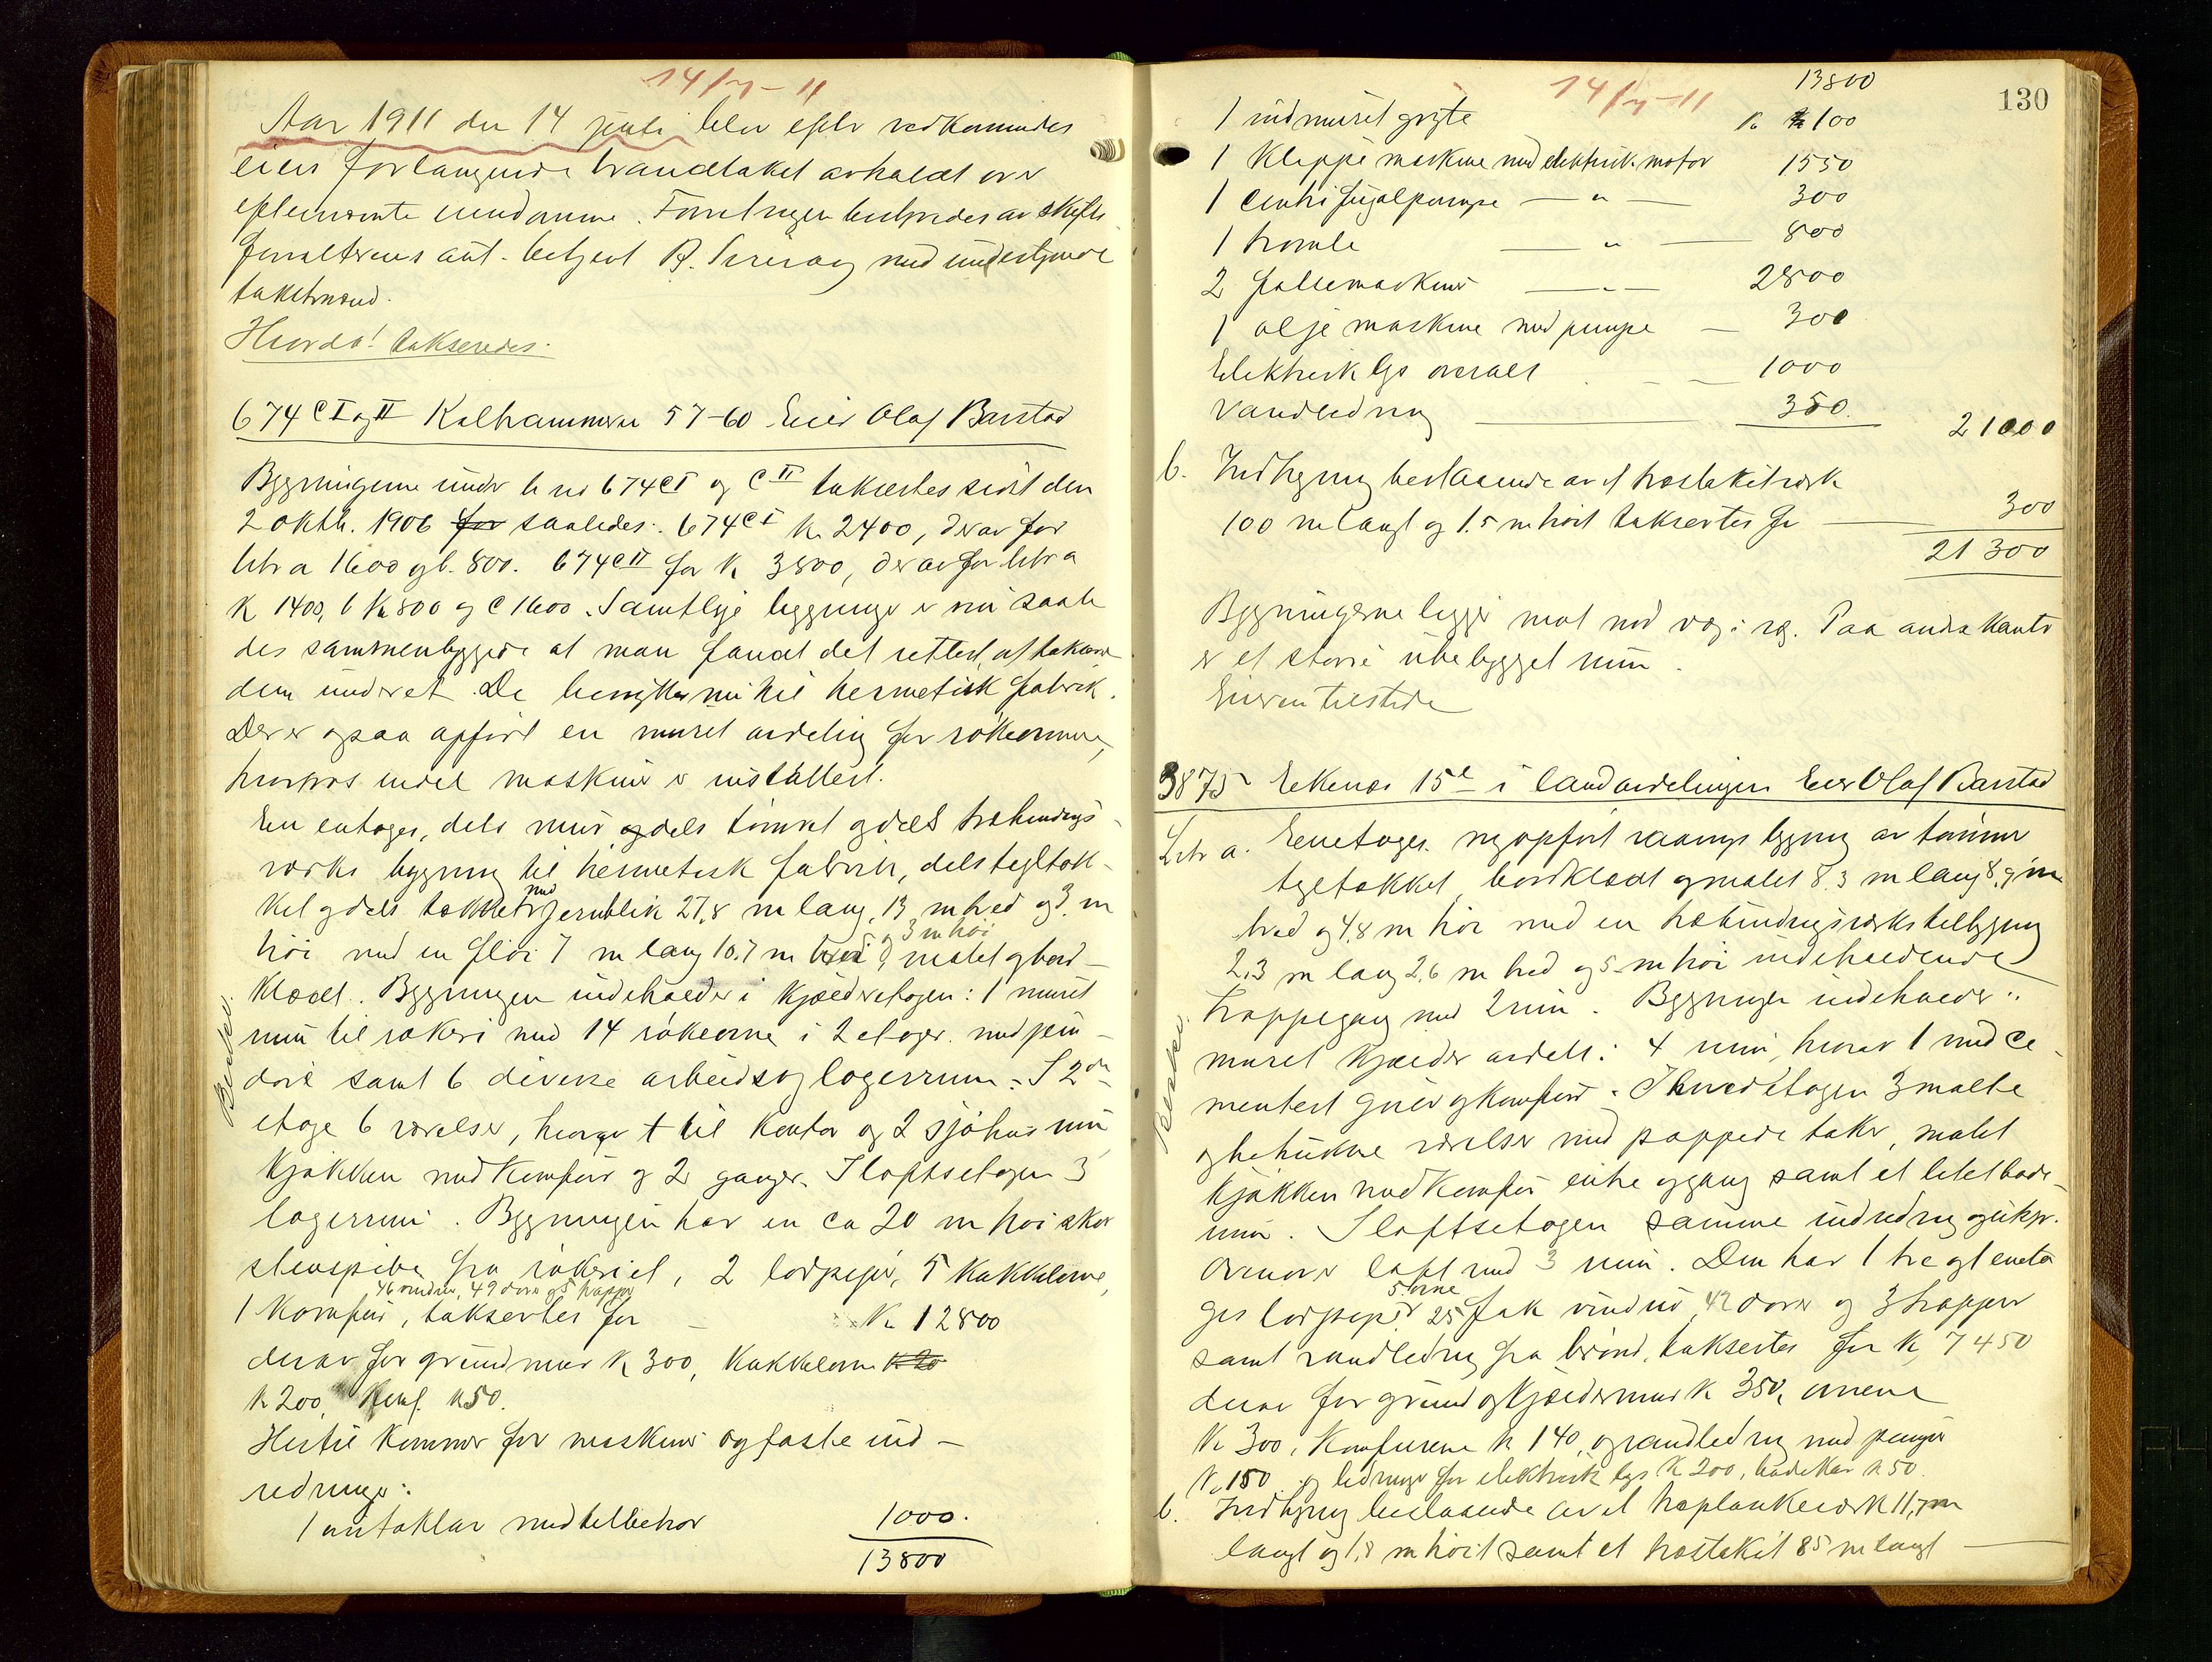 14/7-11
Aar 1911 den 14 juli blev efter vedkommendes
eiers forlangende brandtakst avholdt over
eftennævnte eiendomme. Forretningen bestyredes av skifte
forvalterens aut. betjent B. med undertegnede
takstmænd.
Hvorda! takseredes:
674 C I og II Kalhammeren 57-60 Eier Olaf Barstad
Bygningerne under br no 674 C I og C II taksertes sidst den
2 oktbr. 1906 for saaledes: 674 C I kr 2400, derav for
litr a 1600 og b. 800. 674 C II for kr 3800, derav for litr a
kr 1400, b kr 800 og c 1600. Samtlige bygninger er nu saale
des sammenbyggede at man fandt det rettest at taksere
dem under et. De benyttes nu til hermetisk fabrik.
Der er ogsaa opført en muret avdeling for røkeovne,
hvorhos endel maskiner er installert.
En entages, dels mur og dels tømret og dels træbindings-
verks bygning til hermetisk fabrik, dels tegltæk-
ket og dels tækket med jernblik 27,8 m lang, 13 m bred og 3 m
høi med en fløi 7 m lang 10.7 m bred og 3 m høi, malet og bord-
klædt. Bygningen indeholder i kjælderetagen: 1 muret
rum til røkeri med 14 røkeovne i 2 etager med jern-
døre samt 6 diverse arbeids og lagerrum. I 2den
etage 6 værelser, hvorav 1 til kontor og 2 sjøhus rum
kjøkken med komfur og 2 ganger. I loftsetagen 3
lagerrum. Bygningen har en ca 20 m høi skor
stenspibe fra røkeriet, 2 lødpiper, 5 kakkelovne,
46 vinduer, 49 døre og 5 trapper
1 komfur, taksertes for kr 12800
derav for grundmur kr 300, kakkelovne kr 20
kr 200, Komf. kr 50.
Hertil kommer for maskiner og faste ind-
redninger:
1 autoklav med tilbehør 1000.
13800
Bureau.
14/7-11
130
13800
1 indmuret gryte kr 100
1 Klippe maskine med elektrisk motor 1550
1 Centrifugalpumpe — " — 300
1 tromle — " — 800
2 falsemaskiner — " — 2800
1 olje maskine med pumpe — 300
Elektrisk lys overalt 1000
Vandledning 350. 21000
b. Indhegning bestaaende av et træstakitverk
100 m langt og 1.5 m høit taksertes for 300
21300
Bygningerne ligger mot nord væg i væg. Paa andre kanter
er et større ubebygget rum.
Eieren tilstede
3875 Ekenæs 15 i landavdelingen Eier Olaf Barstad
Litr a. Eenetages nyopført vaanings bygning av tømmer
tegltækket, bordklædt og malet 8.3 m lang 8,9 m
bred og 4,8 m høi med en træbindingsverks tilbygning
2,3 m lang 2,6 m bred og 5 m høi indeholdende
trappegang med 2 rum. Bygningen indeholder:
muret kjælder avdelt i 4 rum, hvorav 1 med ce-
mentert gulv og komfur. I hovedetagen 3 malte
og betrukne værelser med pappede taker, malet
kjøkken med komfur entre og gang samt et litet bade-
rum. I loftsetagen samme indredning og utstyr.
Ovenover loft med 3 rum. Den har 1 tre og 1 eneta
ges lødpiper 5 ovne 25 fak vinduer, 42 døre og 3 trapper
samt vandledning fra brønd, taksertes for kr 7450
derav for grund og kjældermur kr 350, ovnene
kr 300, komfurene kr 140, og vandledning med pumper
kr 150 og ledninger for elektrisk lys kr 200, badekar kr 50.
b. Indhegning bestaaende av et træplankeverk 11,7 m
langt og 1,8 m høit samt et træstakit 85 m langt